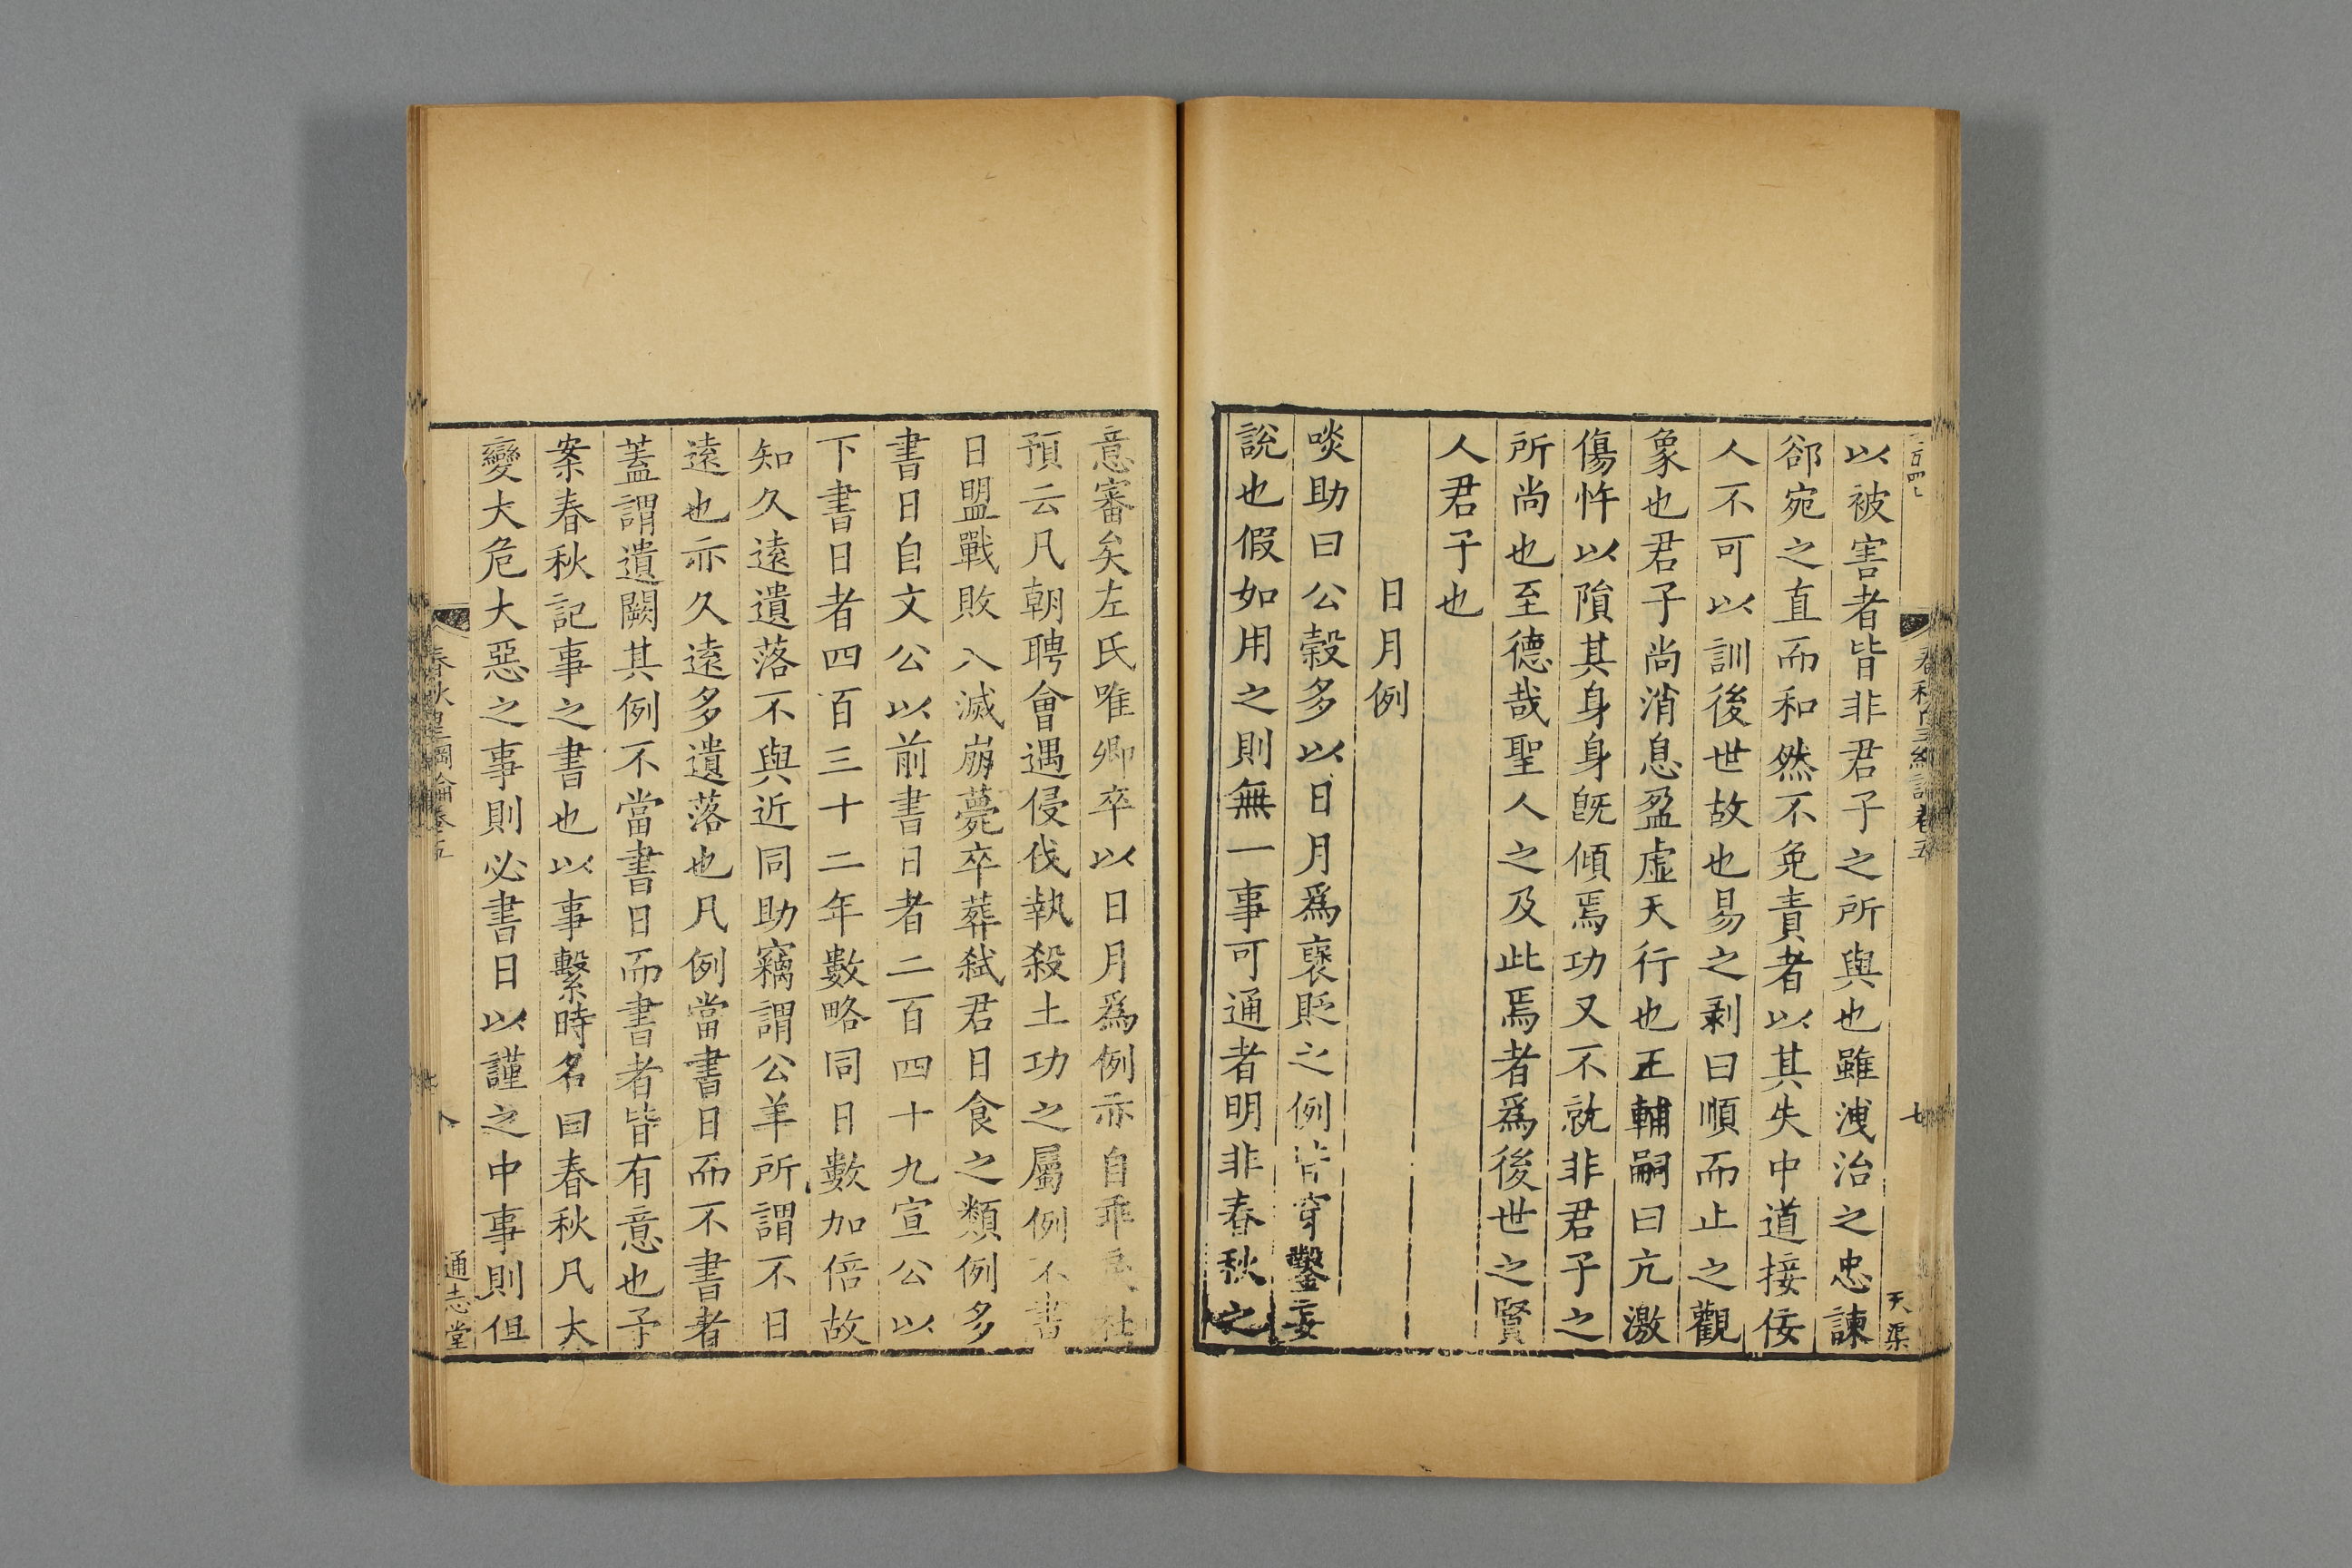 以被害者皆非君子之所與也雖洩治之忠諫
郤宛之直而和然不免責者以其失中道接佞
人不可以訓後世故也易之剥曰順而止之觀
象也君子尚消息盈虛天行也王輔嗣曰亢激
傷忤以隕其身身旣傾焉功又不就非君子之
所尚也至德哉聖人之及此焉者爲後世之賢
人君子也
日月例
啖助曰公穀多以日月爲襃貶之例皆穿鑿妄
說也假如用之則無一事可通者明非春秋之
意審矣左氏唯卿卒以日月爲例亦自乖
預云凡朝聘會遇侵伐執殺土功之屬例不書
日盟戰敗入滅崩薨卒葬弑君日食之類例多
書日自文公以前書日者二百四十九宣公以
下書日者四百三十二年數略同日數加倍故
知久遠遺落不與近同助竊謂公羊所謂不日
遠也亦久遠多遺落也凡例當書日而不書者
蓋謂遺闕其例不當書日而書者皆有意也予
案春秋記事之書也以事繫時名曰春秋凡大
變大危大惡之事則必書日以謹之中事則但
春秋皇綱論卷五
通志堂